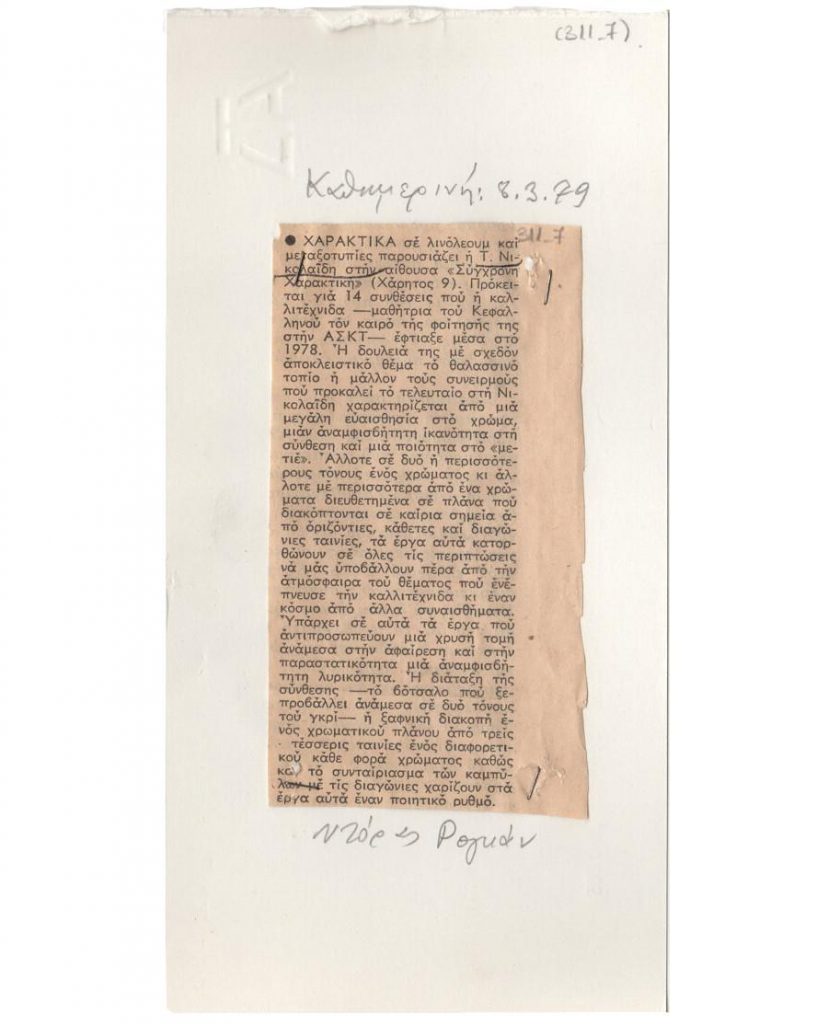 (311_7)
Καθημερινή: 8.3.79
311_7
● ΧΑΡΑΚΤΙΚΑ σέ λινόλεουμ καί
μεταξοτυπίες παρουσιάζει ἡ Τ. Νι-
κολαΐδη στήν αἴθουσα «Σύγχρονη
Χαρακτική» (Χάρητος 9). Πρόκει-
ται γιά 14 συνθέσεις πού ἡ καλ-
λιτέχνιδα —μαθήτρια τοῦ Κεφαλ-
ληνοῦ τόν καιρό τῆς φοίτησής της
στήν ΑΣΚΤ— ἔφτιαξε μέσα στό
1978. Ἡ δουλειά της μέ σχεδόν
ἀποκλειστικό θέμα τό θαλασσινό
τοπίο ἤ μᾶλλον τούς συνειρμούς
πού προκαλεῖ τό τελευταῖο στή Νι-
κολαΐδη χαρακτηρίζεται ἀπό μιά
μεγάλη εὐαισθησία στό χρῶμα,
μιάν ἀναμφισβήτητη ἱκανότητα στή
σύνθεση καί μιά ποιότητα στό «με-
τιέ». Ἄλλοτε σέ δυό ἤ περισσότε-
ρους τόνους ἑνός χρώματος κι ἄλ-
λοτε μέ περισσότερα ἀπό ἕνα χρώ-
ματα διευθετημένα σέ πλάνα πού
διακόπτονται σέ καίρια σημεῖα ἀ-
πό ὁριζόντιες, κάθετες καί διαγώ-
νιες ταινίες, τά ἔργα αὐτά κατορ-
θώνουν σέ ὅλες τίς περιπτώσεις
νά μᾶς ὑποβάλλουν πέρα ἀπό τήν
ἀτμόσφαιρα τοῦ θέματος πού ἐνέ-
πνευσε τήν καλλιτέχνιδα κι ἕναν
κόσμο ἀπό ἄλλα συναισθήματα.
Ὑπάρχει σέ αὐτά τά ἔργα πού
ἀντιπροσωπεύουν μιά χρυσή τομή
ἀνάμεσα στήν ἀφαίρεση καί στήν
παραστατικότητα μιά ἀναμφισβή-
τητη λυρικότητα. Ἡ διάταξη τῆς
σύνθεσης —τό βότσαλο πού ξε-
προβάλλει ἀνάμεσα σέ δυό τόνους
τοῦ γκρί— ἡ ξαφνική διακοπή ἑ-
νός χρωματικοῦ πλάνου ἀπό τρεῖς
- τέσσερις ταινίες ἑνός διαφορετι-
κοῦ κάθε φορά χρώματος καθώς
καί τό συνταίριασμα τῶν καμπύ-
λων μέ τίς διαγώνιες χαρίζουν στά
ἔργα αὐτά ἕναν ποιητικό ρυθμό.
Ρογκάν